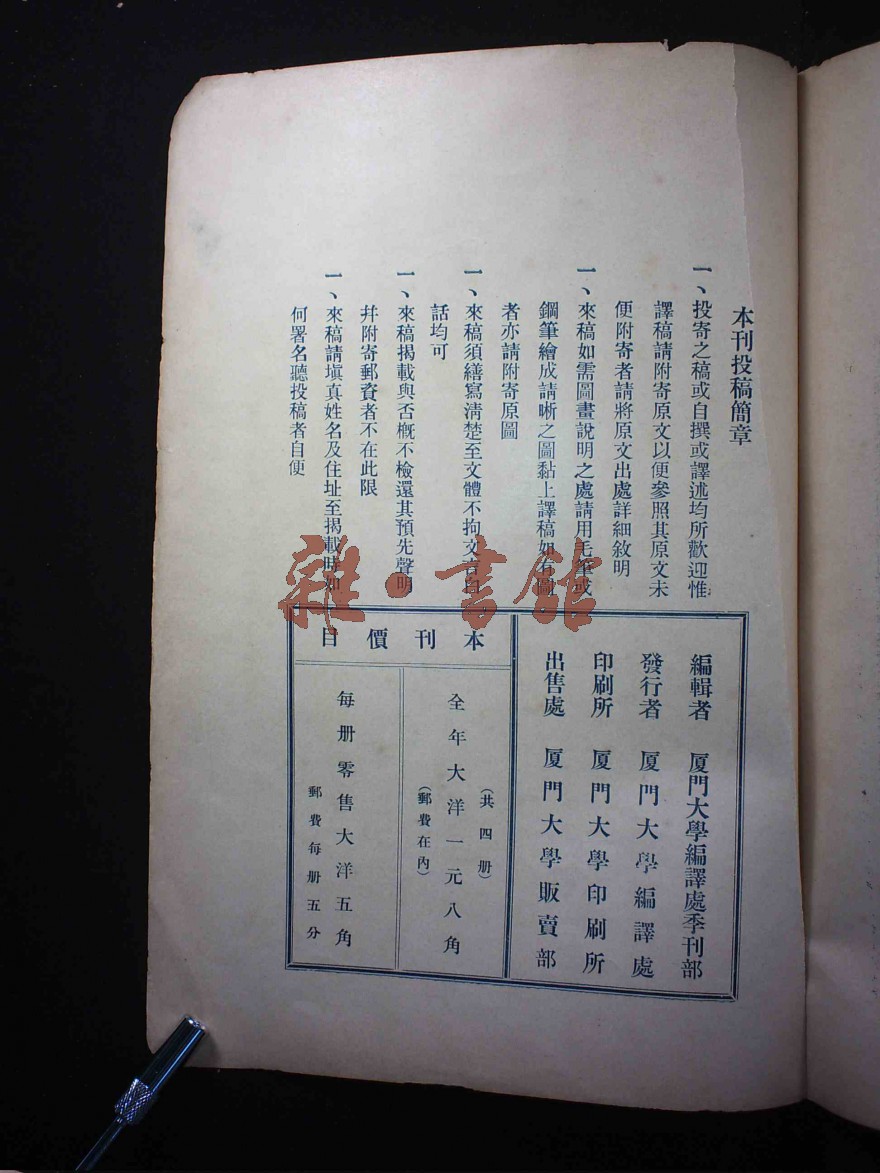 本刊投稿簡章
一、投寄之稿或自撰或譯述均所歡迎惟
譯稿請附寄原文以便參照其原文未
便附寄者請將原文出處詳細敘明
一、來稿如需圖畫說明之處請用毛筆或
鋼筆繪成請晰之圖黏上譯稿如有圖
者亦請附寄原圖
一、來稿須繕寫清楚至文體不拘文言白
話均可
一、來稿揭載與否概不檢還其預先聲明
幷附寄郵資者不在此限
一、來稿請塡真姓名及住址至揭載時如
何署名聽投稿者自便
編輯者 厦門大學編譯處季刊部
發行者 厦門大學編譯處
印刷所 厦門大學印刷所
出售處 厦門大學販賣部
本刊價目
(共四册)
全年大洋一元八角
(郵費在內)
每册零售大洋五角
郵費每册五分
雜·書館